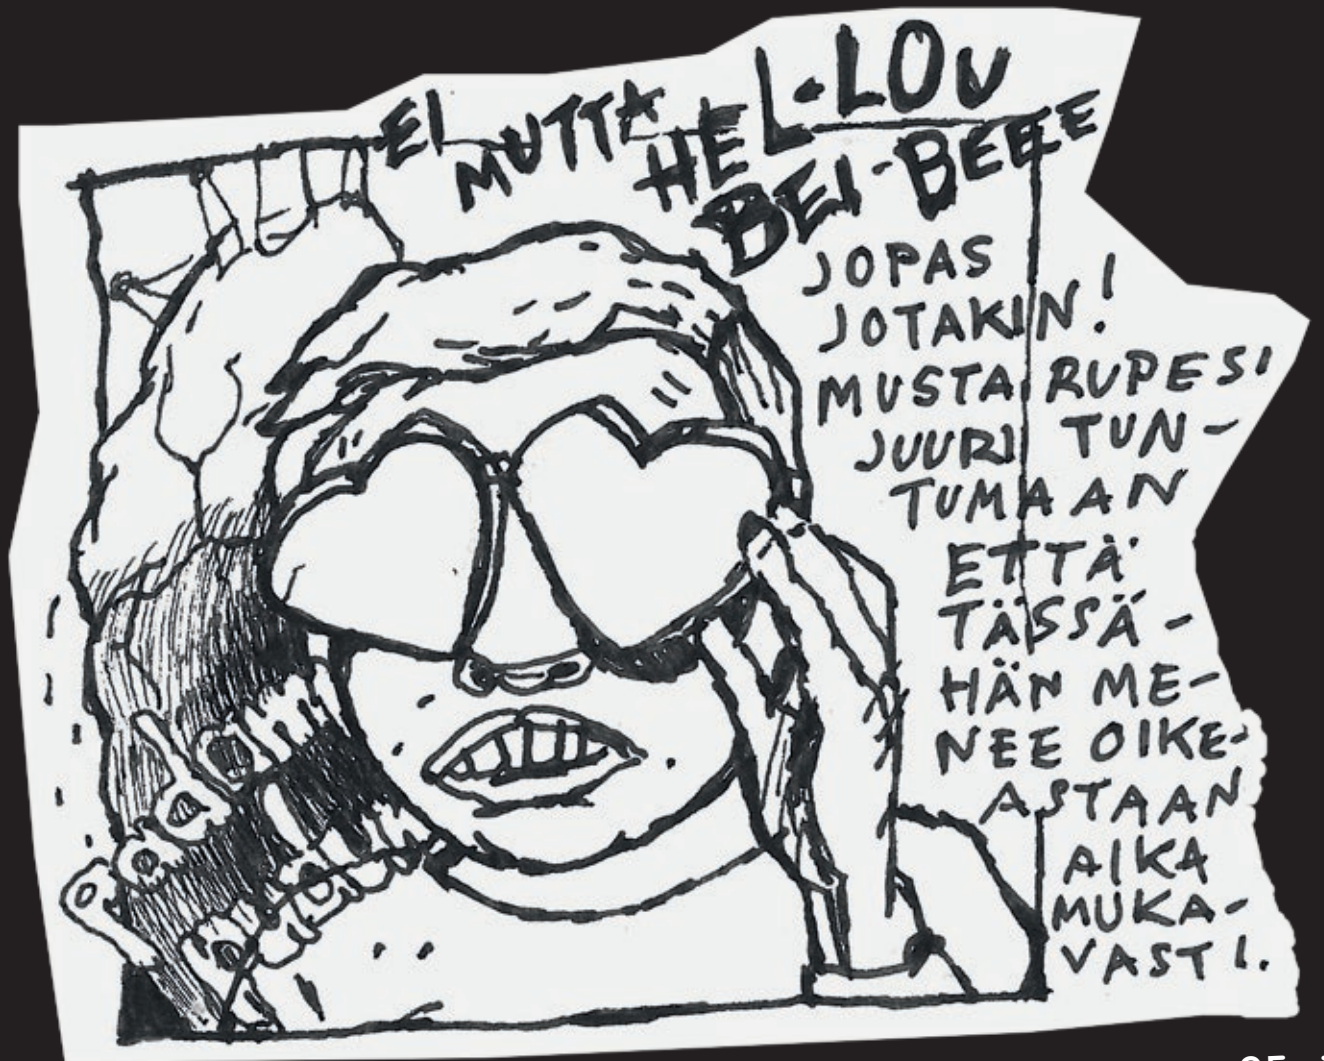 EI MUTTA HEL-LOU
BEI-BEEE
JOPAS
JOTAKIN!
MUSTA RUPESI
JUURI TUN-
TUMAAN
ETTÄ
TÄSSÄ-
HÄN ME-
NEE OIKE-
ASTAAN
AIKA
MUKA-
VASTI.